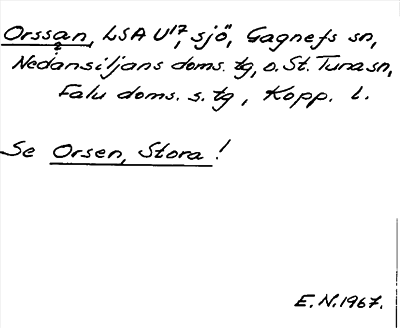 Orssan, LSA U17, sjö, Gagnefs sn,
Nedansiljans doms. tg, o. St. Tuna sn,
Falu doms. s. tg, Kopp. l.
Se Orsen, Stora!
E. N. 1967.